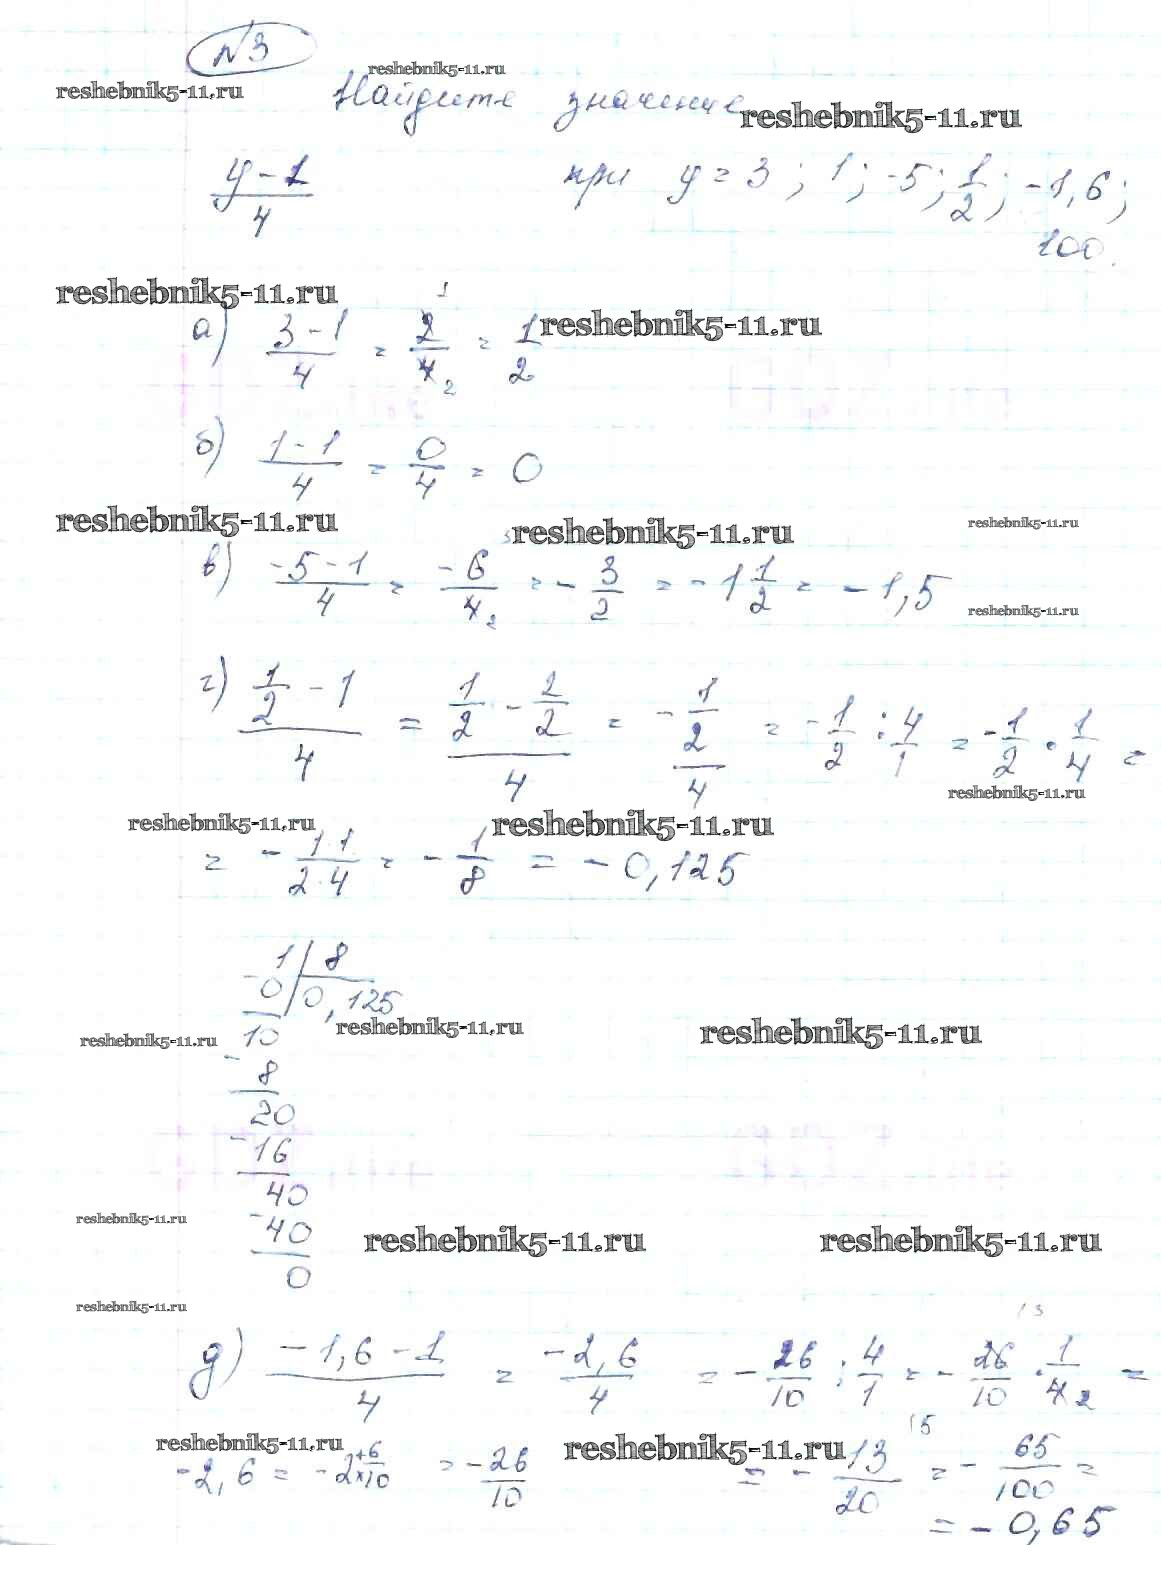 №3
reshebnik5-11.ru
reshebnik5-11.ru Найдите значение reshebnik5-11.ru
(y-1)/4 при y = 3; 1; -5; 1/2; -1,6;
100.
reshebnik5-11.ru
а) (3-1)/4 = 2/4 = 1/2 reshebnik5-11.ru
1 2
б) (1-1)/4 = 0/4 = 0
reshebnik5-11.ru reshebnik5-11.ru reshebnik5-11.ru
в) (-5-1)/4 = -6/4 = -3/2 = -1 1/2 = -1,5
3 2
reshebnik5-11.ru
г) (1/2 - 1)/4 = (1/2 - 2/2)/4 = (-1/2)/4 = -1/2 : 4/1 = -1/2 · 1/4 =
reshebnik5-11.ru
reshebnik5-11.ru reshebnik5-11.ru
= -(1·1)/(2·4) = -1/8 = -0,125
1 | 8
-0 | 0,125
reshebnik5-11.ru reshebnik5-11.ru
reshebnik5-11.ru 10
- 8
20
-16
40
reshebnik5-11.ru -40 reshebnik5-11.ru reshebnik5-11.ru
0
reshebnik5-11.ru
д) (-1,6-1)/4 = -2,6/4 = -26/10 : 4/1 = -26/10 · 1/4 =
13 2
reshebnik5-11.ru reshebnik5-11.ru
-2,6 = -2 6/10 = -26/10 = -13/20 = -65/100 =
+ × (5
= -0,65